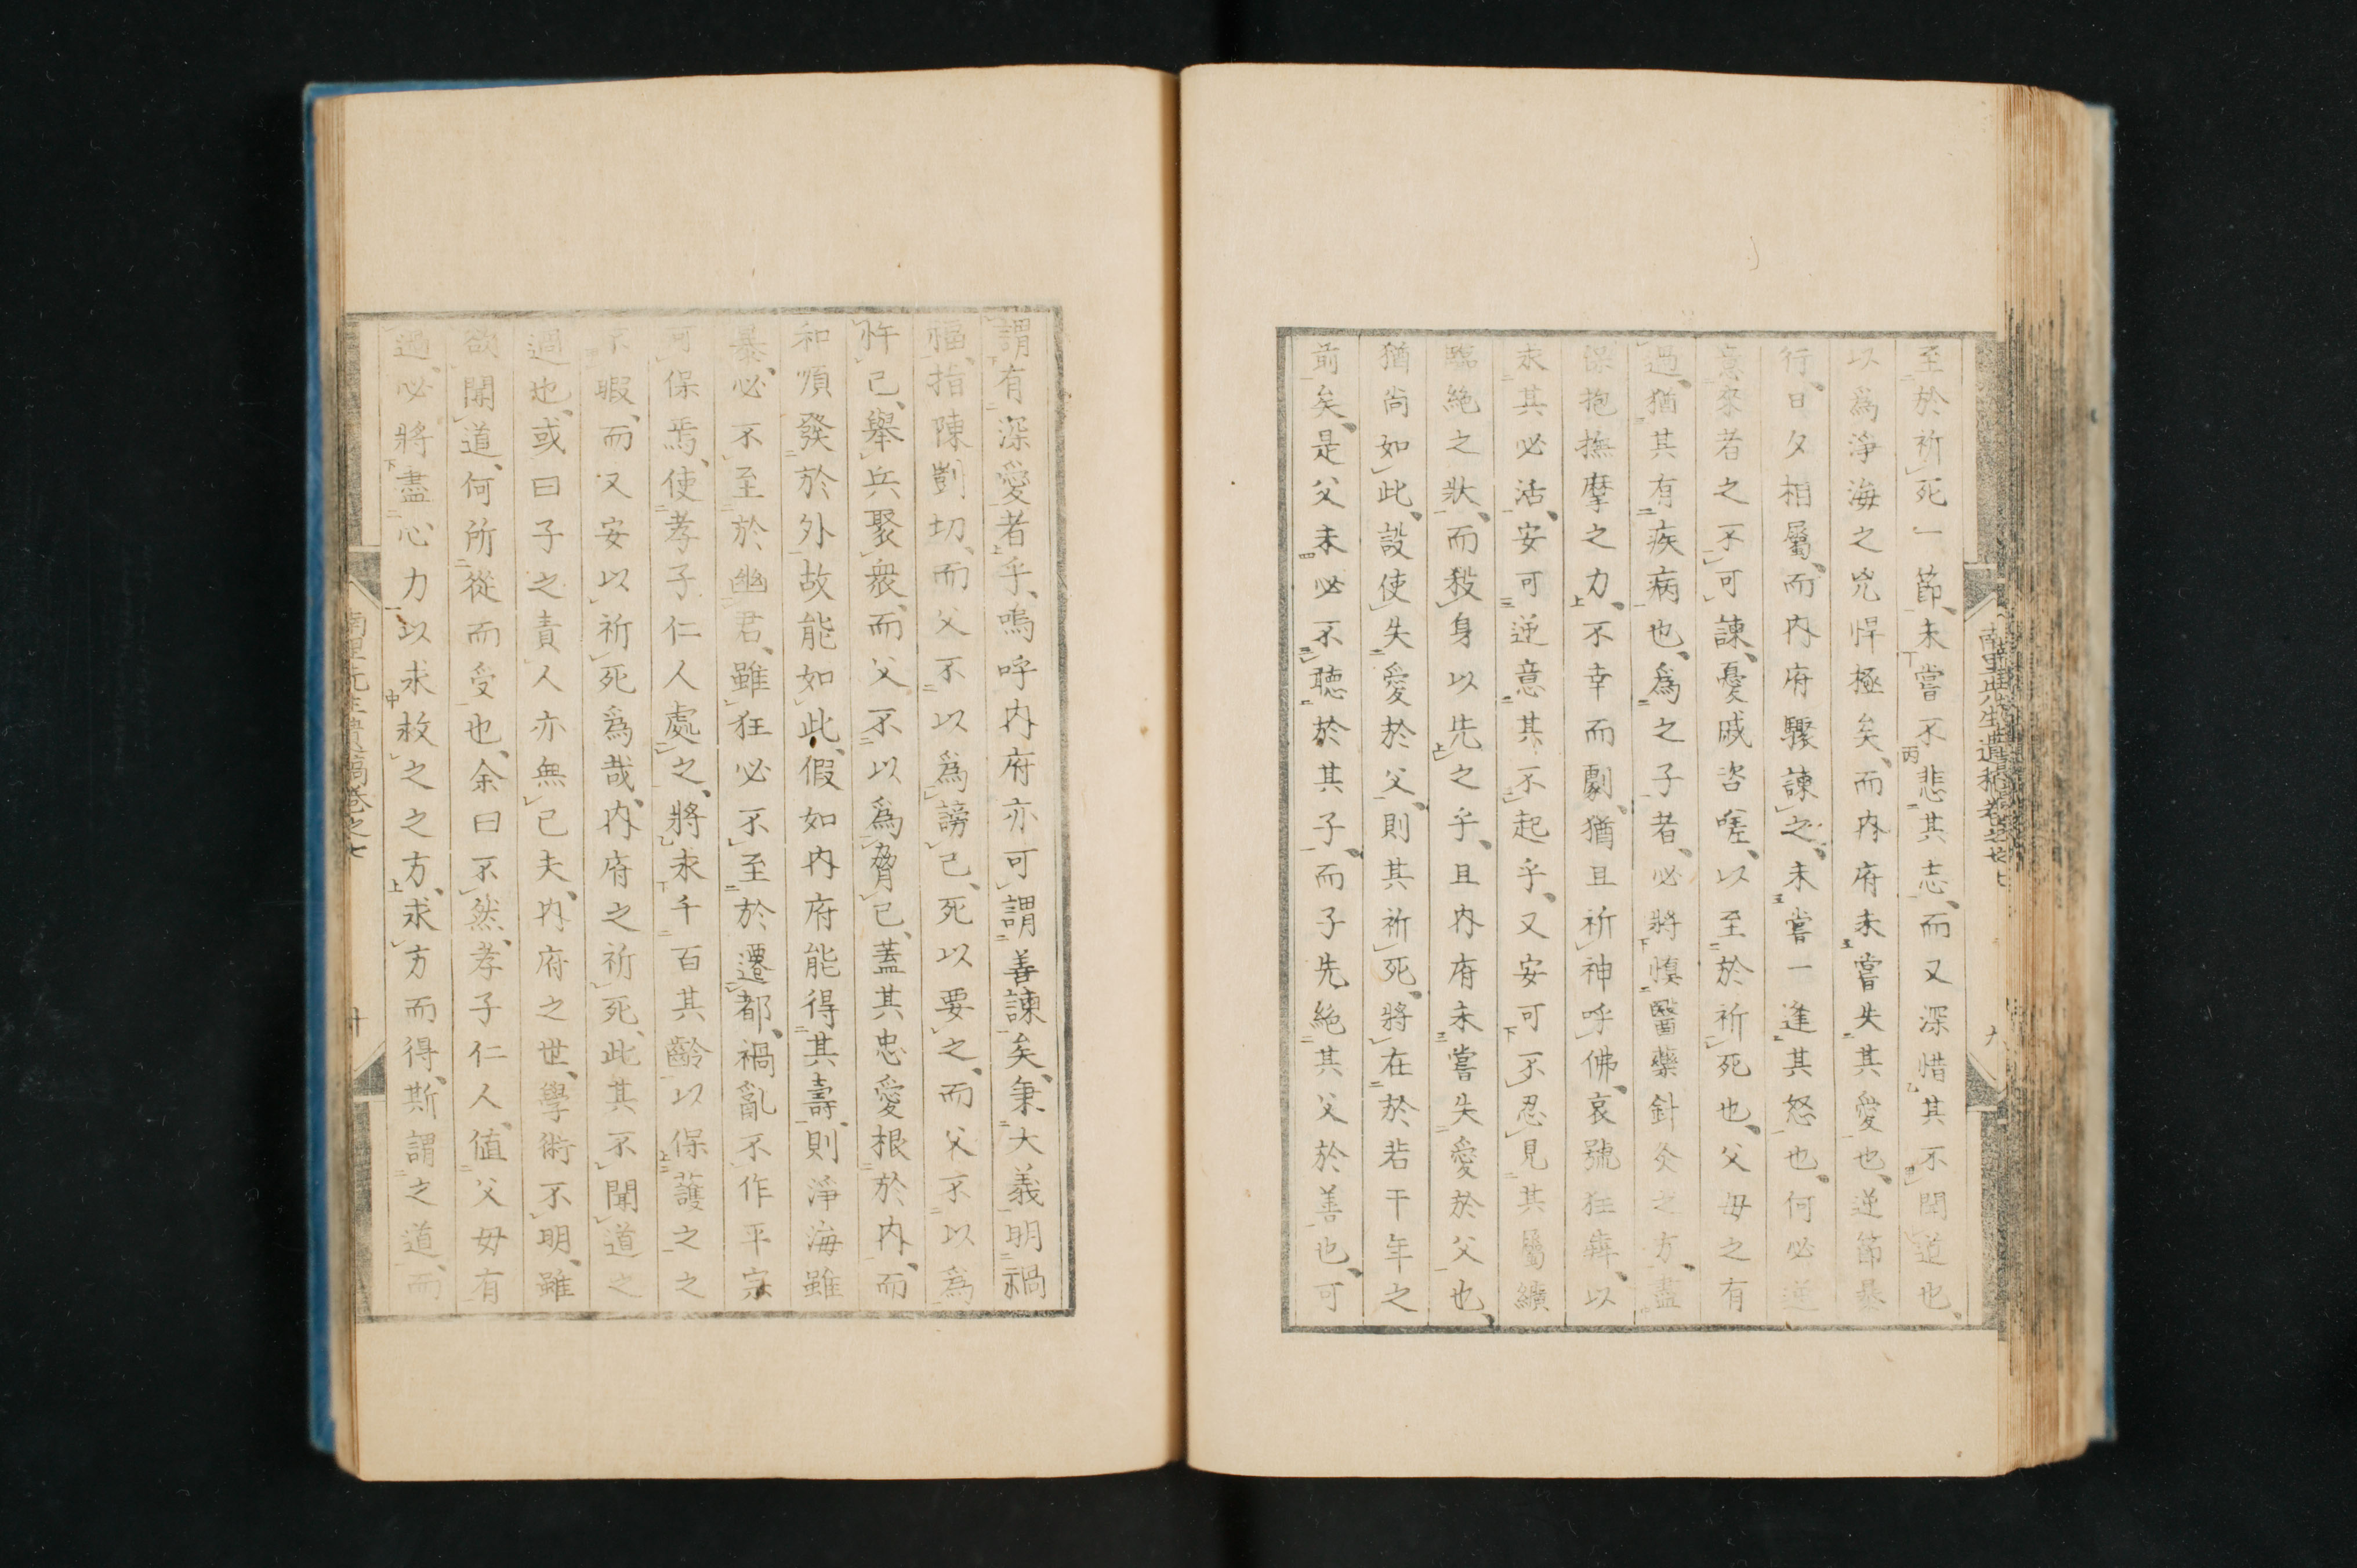 至於祈死一節、未嘗不悲其志、而又深惜其不聞道也、
以爲淨海之兇悍極矣、而內府未嘗失其愛也、逆節暴
行、日夕相屬、而內府驟諫之、未嘗一逢其怒也、何必逆
意來者之不可諫、憂戚咨嗟、以至於祈死也、父母之有
過、猶其有疾病也、爲之子者、必將愼醫藥針灸之方、盡
保抱撫摩之力、不幸而劇、猶且祈神呼佛、哀號狂奔、以
求其必活、安可逆意其不起乎、又安可不忍見其屬纊
臨絶之狀、而殺身以先之乎、且內府未嘗失愛於父也、
猶尚如此、設使失愛於父、則其祈死、將在於若干年之
前矣、是父未必不聽於其子、而子先絶其父於善也、可
謂有深愛者乎、嗚呼內府亦可謂善諫矣、秉大義明禍
福、指陳剴切、而父不以爲謗己、死以要之、而父不以爲
忤己、舉兵聚衆、而父不以爲脅己、蓋其忠愛根於內、而
和順發於外、故能如此、假如內府能得其壽、則淨海雖
暴、必不至於幽君、雖狂必不至於遷都、禍亂不作平宗
可保焉、使孝子仁人處之、將求千百其齡以保護之之
不暇、而又安以祈死爲哉、內府之祈死、此其不聞道之
過也、或曰子之責人亦無已夫、內府之世、學術不明、雖
欲聞道、何所從而受也、余曰不然、孝子仁人、値父母有
過、必將盡心力以求救之之方、求方而得、斯謂之道、而
南里先生遺稿卷之七